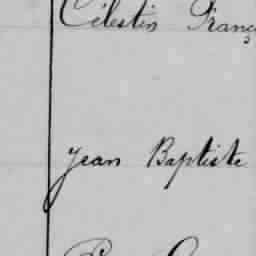 Célestin Franç
Jean Baptiste